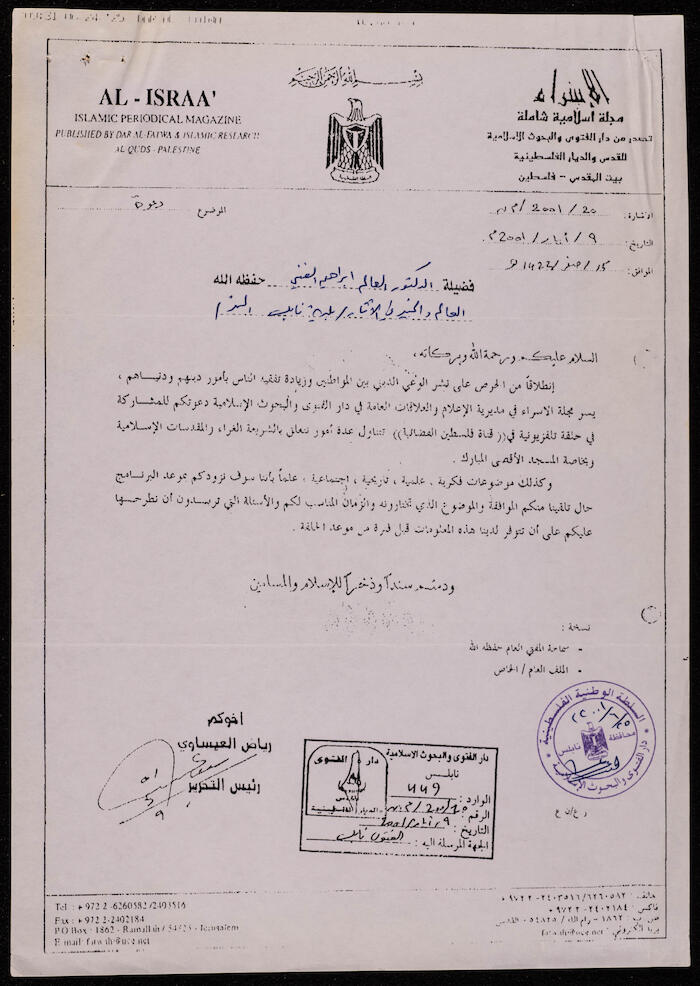 بسم الله الرحمن الرحيم
AL - ISRAA'
ISLAMIC PERIODICAL MAGAZINE
PUBLISHED BY DAR AL-FATWA & ISLAMIC RESEARCH
AL QUDS - PALESTINE
الإسراء
مجلة اسلامية شاملة
تصدر من دار الفتوى والبحوث الاسلامية
للقدس والديار الفلسطينية
بيت المقدس - فلسطين
الاشارة: 20 / 2001
التاريخ: 9 / أيار / 2001م
الموافق: 15 / صفر / 1422 هـ
الموضوع دعوة
فضيلة الدكتور العالم ابراهيم الفني حفظه الله
السلام عليكم ورحمة الله وبركاته،
إنطلاقاً من الحرص على نشر الوعي الديني بين المواطنين وزيادة تفقيه الناس بأمور دينهم ودنياهم ،
يسر مجلة الاسراء في مديرية الإعلام والعلاقات العامة في دار الفتوى والبحوث الإسلامية دعوتكم للمشاركة
في حلقة تلفزيونية في(( قناة فلسطين الفضائية)) تتناول عدة أمور تتعلق بالشريعة الغراء والمقدسات الإسلامية
وبخاصة المسجد الأقصى المبارك .
وكذلك موضوعات فكرية ، علمية ، تاريخية ، إجتماعية ، علماً بأننا سوف نزودكم بموعد البرنامج
حال تلقينا منكم الموافقة والموضوع الذي تختارونه والزمان المناسب لكم والأسئلة التي تريدون أن نطرحها
عليكم على أن تتوفر لدينا هذه المعلومات قبل فترة من موعد الحلقة .
ودمتم سنداً وذخراً للإسلام والمسلمين
نسخة :
- سماحة المفتي العام حفظه الله
- الملف العام / الخاص
أخوكم
رياض العيساوي
رئيس التحرير
دار الفتوى
دار الفتوى والبحوث الاسلامية
نابلس
الوارد: 449
الرقم:
التاريخ: 9 / أيار / 2001
الجهة المرسلة اليه :
السلطة الوطنية الفلسطينية
محافظة نابلس
دار الفتوى والبحوث الإسلامية
ر ع/ن ع
Tel : + 972 2 -6260582 /2403516
Fax : + 972 2-2402184
PO Box - 1862 - Ramallah / 54825 - Jerusalem
هاتف: ٦٢٦٠٥٨٢/٢٤٠٣٥١٦-٢ ٩٧٢+
فاكس: ٢٤٠٢١٨٤-٢ ٩٧٢+
ص ب: ١٨٦٢ - رام الله / ٥٤٨٢٥ - القدس